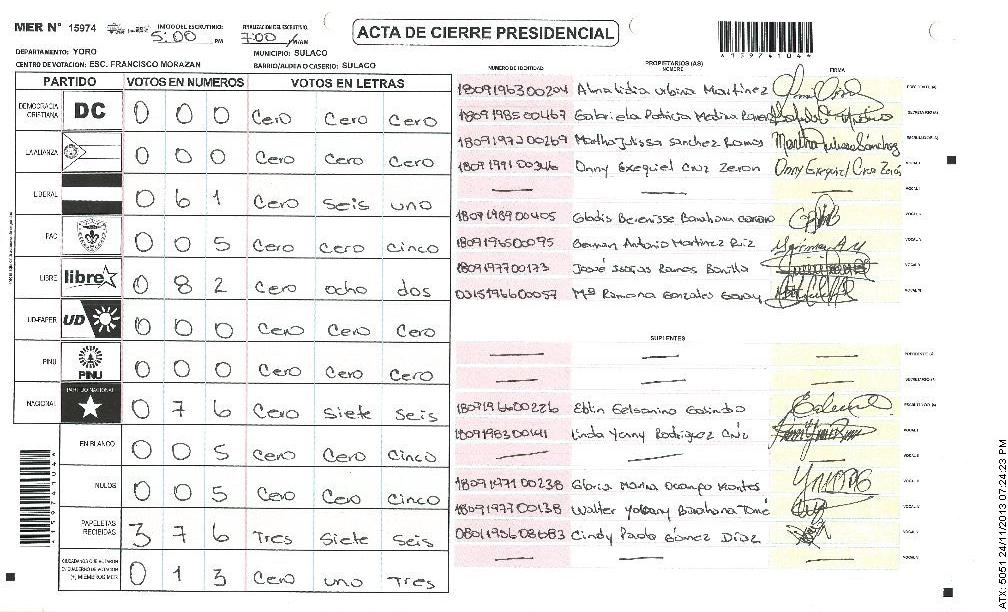 MER N° 15974
INICIO DEL ESCRUTINIO: 5:00 PM
FINALIZACION DEL ESCRUTINIO: 7:00
ACTA DE CIERRE PRESIDENCIAL
DEPARTAMENTO: YORO
MUNICIPIO: SULACO
CENTRO DE VOTACION: ESC. FRANCISCO MORAZAN
BARRIO/ALDEA O CASERIO: SULACO
PARTIDO VOTOS EN NUMEROS VOTOS EN LETRAS
DEMOCRACIA CRISTIANA DC 0 0 0 Cero Cero Cero
LA ALIANZA 0 0 0 Cero Cero Cero
LIBERAL 0 6 1 Cero seis uno
PAC 0 0 5 Cero Cero Cinco
LIBRE libre 0 8 2 Cero ocho dos
UD-FAPER UD 0 0 0 Cero Cero Cero
PINU PINU 0 0 0 Cero Cero Cero
NACIONAL PARTIDO NACIONAL 0 7 6 Cero Siete Seis
EN BLANCO 0 0 5 Cero Cero Cinco
NULOS 0 0 5 Cero Cero Cinco
PAPELETAS RECIBIDAS 3 7 6 Tres Siete Seis
CIUDADANOS QUE VOTARON EN CUADERNO DE VOTACION (+) MIEMBROS MER 0 1 3 Cero uno Tres
NUMERO DE IDENTIDAD PROPIETARIOS (AS) NOMBRE FIRMA
1809196300204 Alma lidia urbina Martinez
1809198500467 Gabriela Patricia Medina
1809197300269 Martha Julissa Sanchez Ramos
1809199100346 Onny Exequiel Cruz Zeron Onny Exequiel Cruz Zeron
1809198900405 Gladis Berenisse Barahona
1809196500095 German Antonio Martinez Ruiz
1809197700173 José Isaias Ramos Bonilla
0315196600057 Mª Ramona Gonzales
SUPLENTES
1809196600226 Eblin Gelsomino Galindo
1809198300141 Linda Yenny Rodriguez Cruz
1809197100238 Gloria Marina Ocampo Montes
1809197700138 Walter Yobany Barahona Tomé
Cindy Paola Gómez Díaz
*15974104*
ATX: 5051 24/11/2013 07:24:23 PM